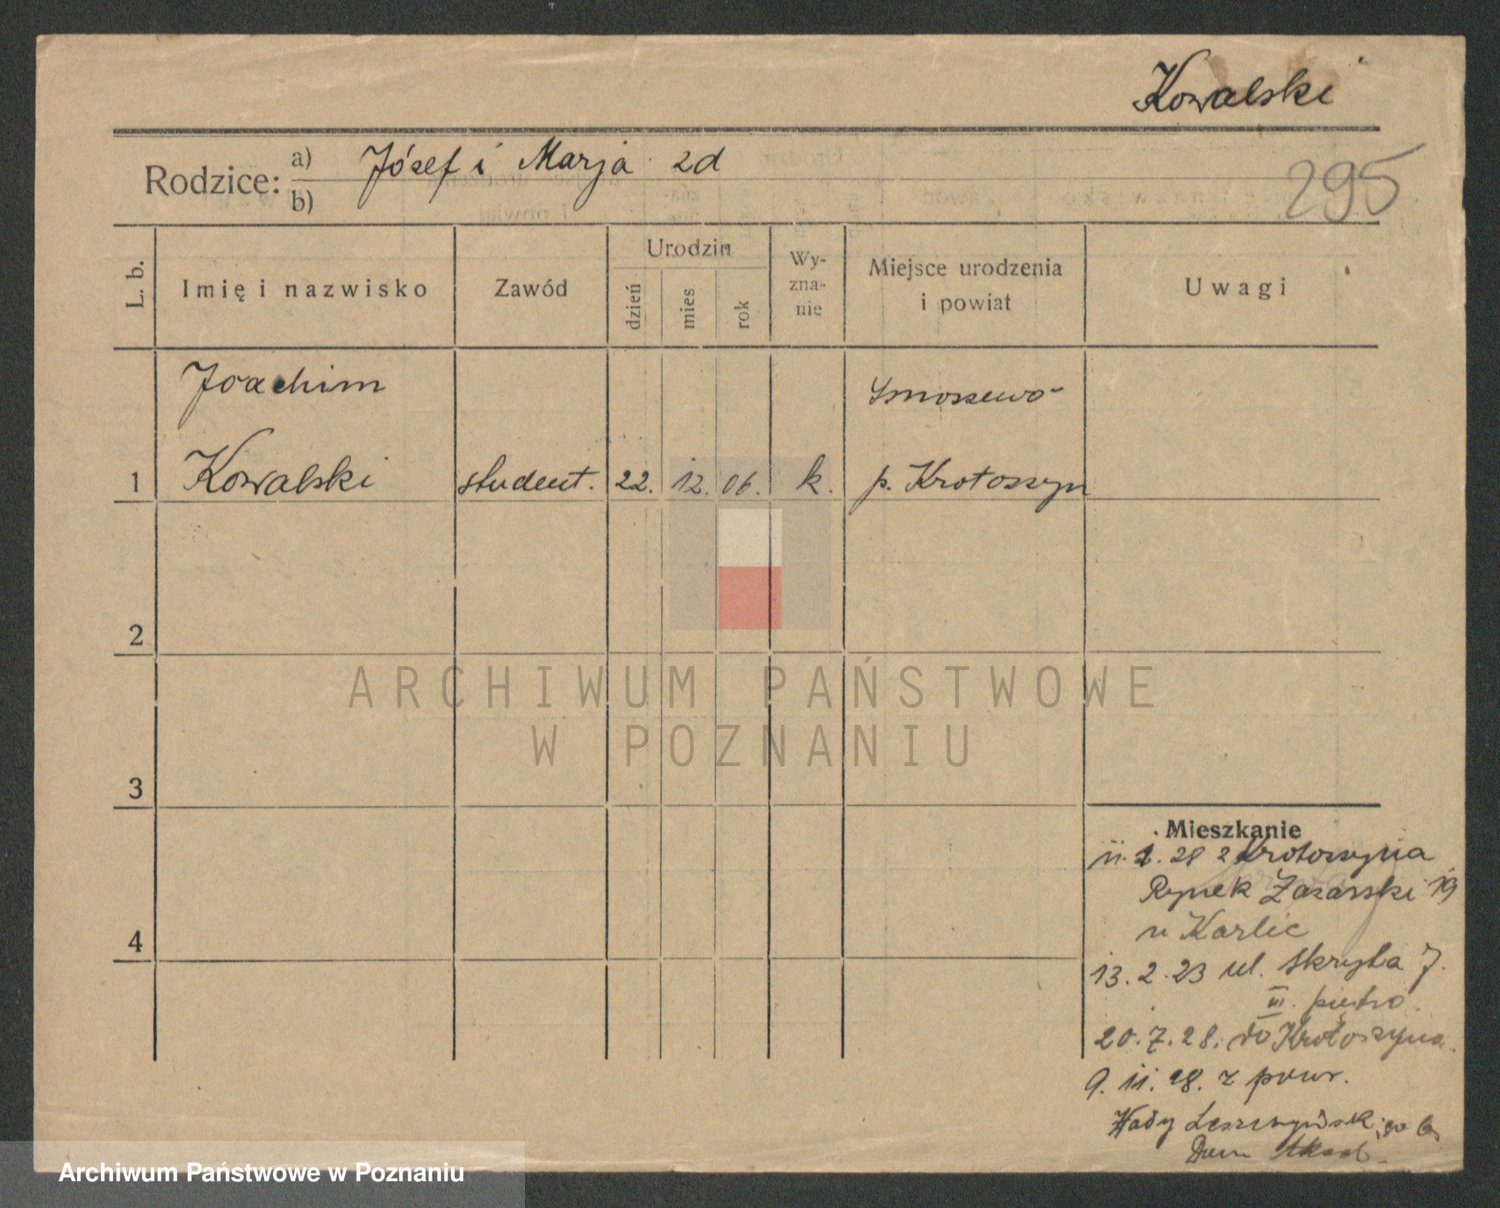 Kowalski
295
Rodzice: a) Józef i Marja zd
b)
L. b.
Imię i nazwisko
Zawód
Urodzin
dzień
mies
rok
Wy-
zna-
nie
Miejsce urodzenia
i powiat
Uwagi
Joachim
Smoszewo
1 Kowalski student. 22. 12. 06. k. p. Krotoszyn
2
3
4
ARCHIWUM PAŃSTWOWE
W POZNANIU
Mieszkanie
11. 1. 28 z Krotoszyna
Rynek Łazarski 19
u Karlic
13. 2. 23 ul. Skryta 7.
III. piętro.
20. 7. 28. do Krotoszyna.
9. 11. 28. z powr.
Wały Leszczyńsk
Dom Akad.
Archiwum Państwowe w Poznaniu